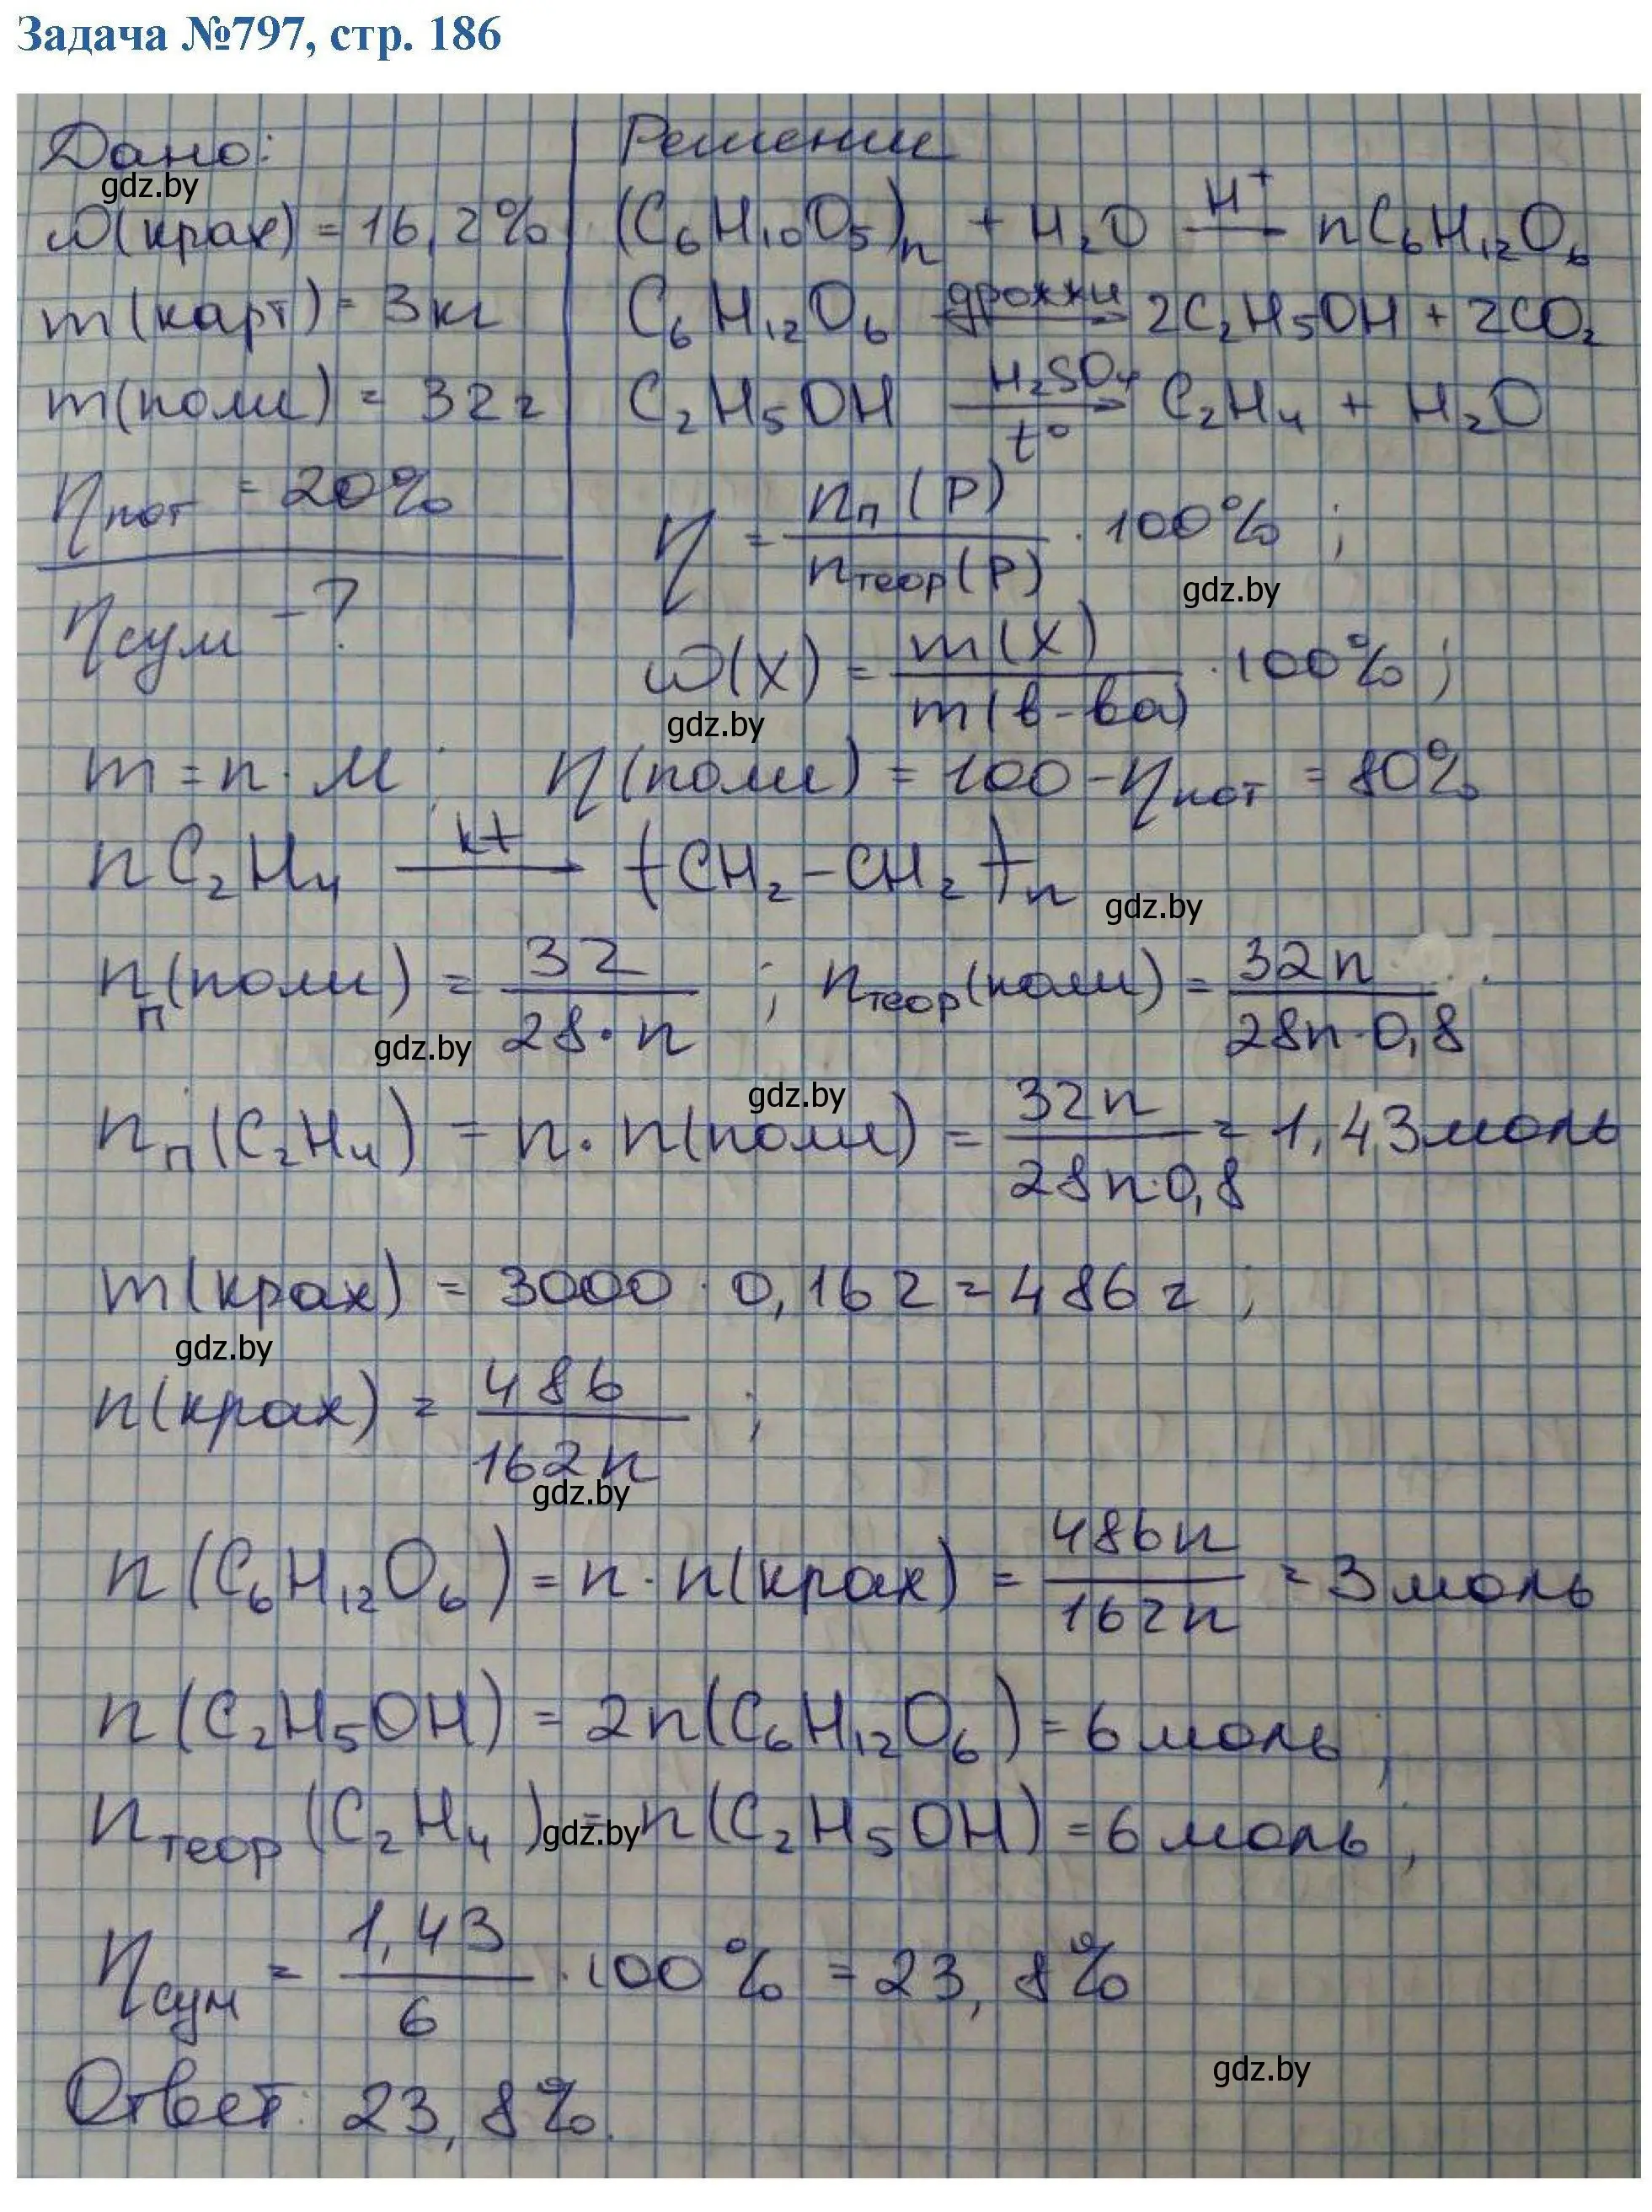 Задача №797, стр. 186
Дано:
Решение
gdz.by
ω(крах) = 16,2%
(C₆H₁₀O₅)ₙ + H₂O —H⁺→ nC₆H₁₂O₆
m(карт) = 3кг
C₆H₁₂O₆ —дрожжи→ 2C₂H₅OH + 2CO₂
m(поли) = 32г
C₂H₅OH —H₂SO₄, t°→ C₂H₄ + H₂O
ηпот = 20%
η = nп(P) / nтеор(P) · 100% ;
gdz.by
ηсум - ?
ω(X) = m(X) / m(в-ва) · 100% ;
gdz.by
m = n · M ; η(поли) = 100 - ηпот = 80%
nC₂H₄ —kt→ (CH₂-CH₂)ₙ
gdz.by
nп(поли) = 32 / 28·n ; nтеор(поли) = 32n / 28n·0,8
gdz.by
gdz.by
nп(C₂H₄) = n · n(поли) = 32n / 28n·0,8 = 1,43моль
m(крах) = 3000 · 0,162 = 486г ;
gdz.by
n(крах) = 486 / 162n ;
gdz.by
n(C₆H₁₂O₆) = n · n(крах) = 486n / 162n = 3моль
n(C₂H₅OH) = 2n(C₆H₁₂O₆) = 6моль ;
nтеор(C₂H₄) = n(C₂H₅OH) = 6моль ;
gdz.by
ηсум = 1,43 / 6 · 100% = 23,8%
gdz.by
Ответ: 23,8%.